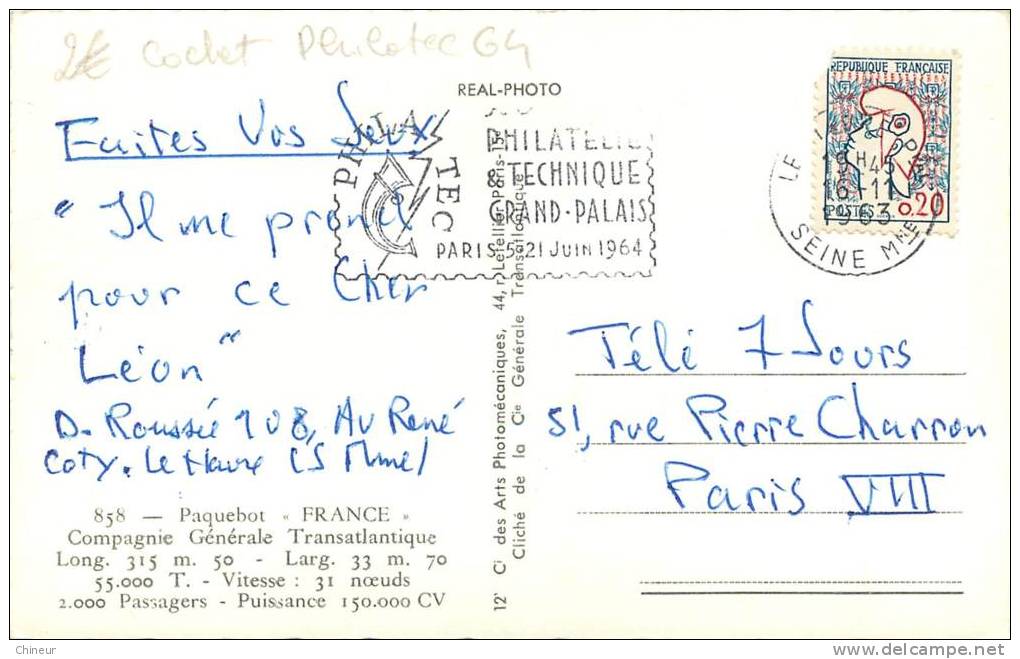 2€ Cachet Philatec 64
REAL-PHOTO
Faites Vos Jeux
PHILATEC
PHILATELIE
& TECHNIQUE
GRAND-PALAIS
PARIS 5-21 JUIN 1964
REPUBLIQUE FRANÇAISE
POSTES 0,20
LE
19H45
16-11
1963
SEINE MME
" Il me prend
pour ce Cher
Léon "
D. Roussée 108, AV René
Coty. Le Havre (S Mme)
Télé 7 Jours
51, rue Pierre Charron
Paris VIII
858 — Paquebot « FRANCE »
Compagnie Générale Transatlantique
Long. 315 m. 50 - Larg. 33 m. 70
55.000 T. - Vitesse : 31 nœuds
2.000 Passagers - Puissance 150.000 CV
12' Ci des Arts Photomécaniques, 44, r. Letellier, Paris-15e
Cliché de la Cie Générale Transatlantique
Chineur
delcampe.net